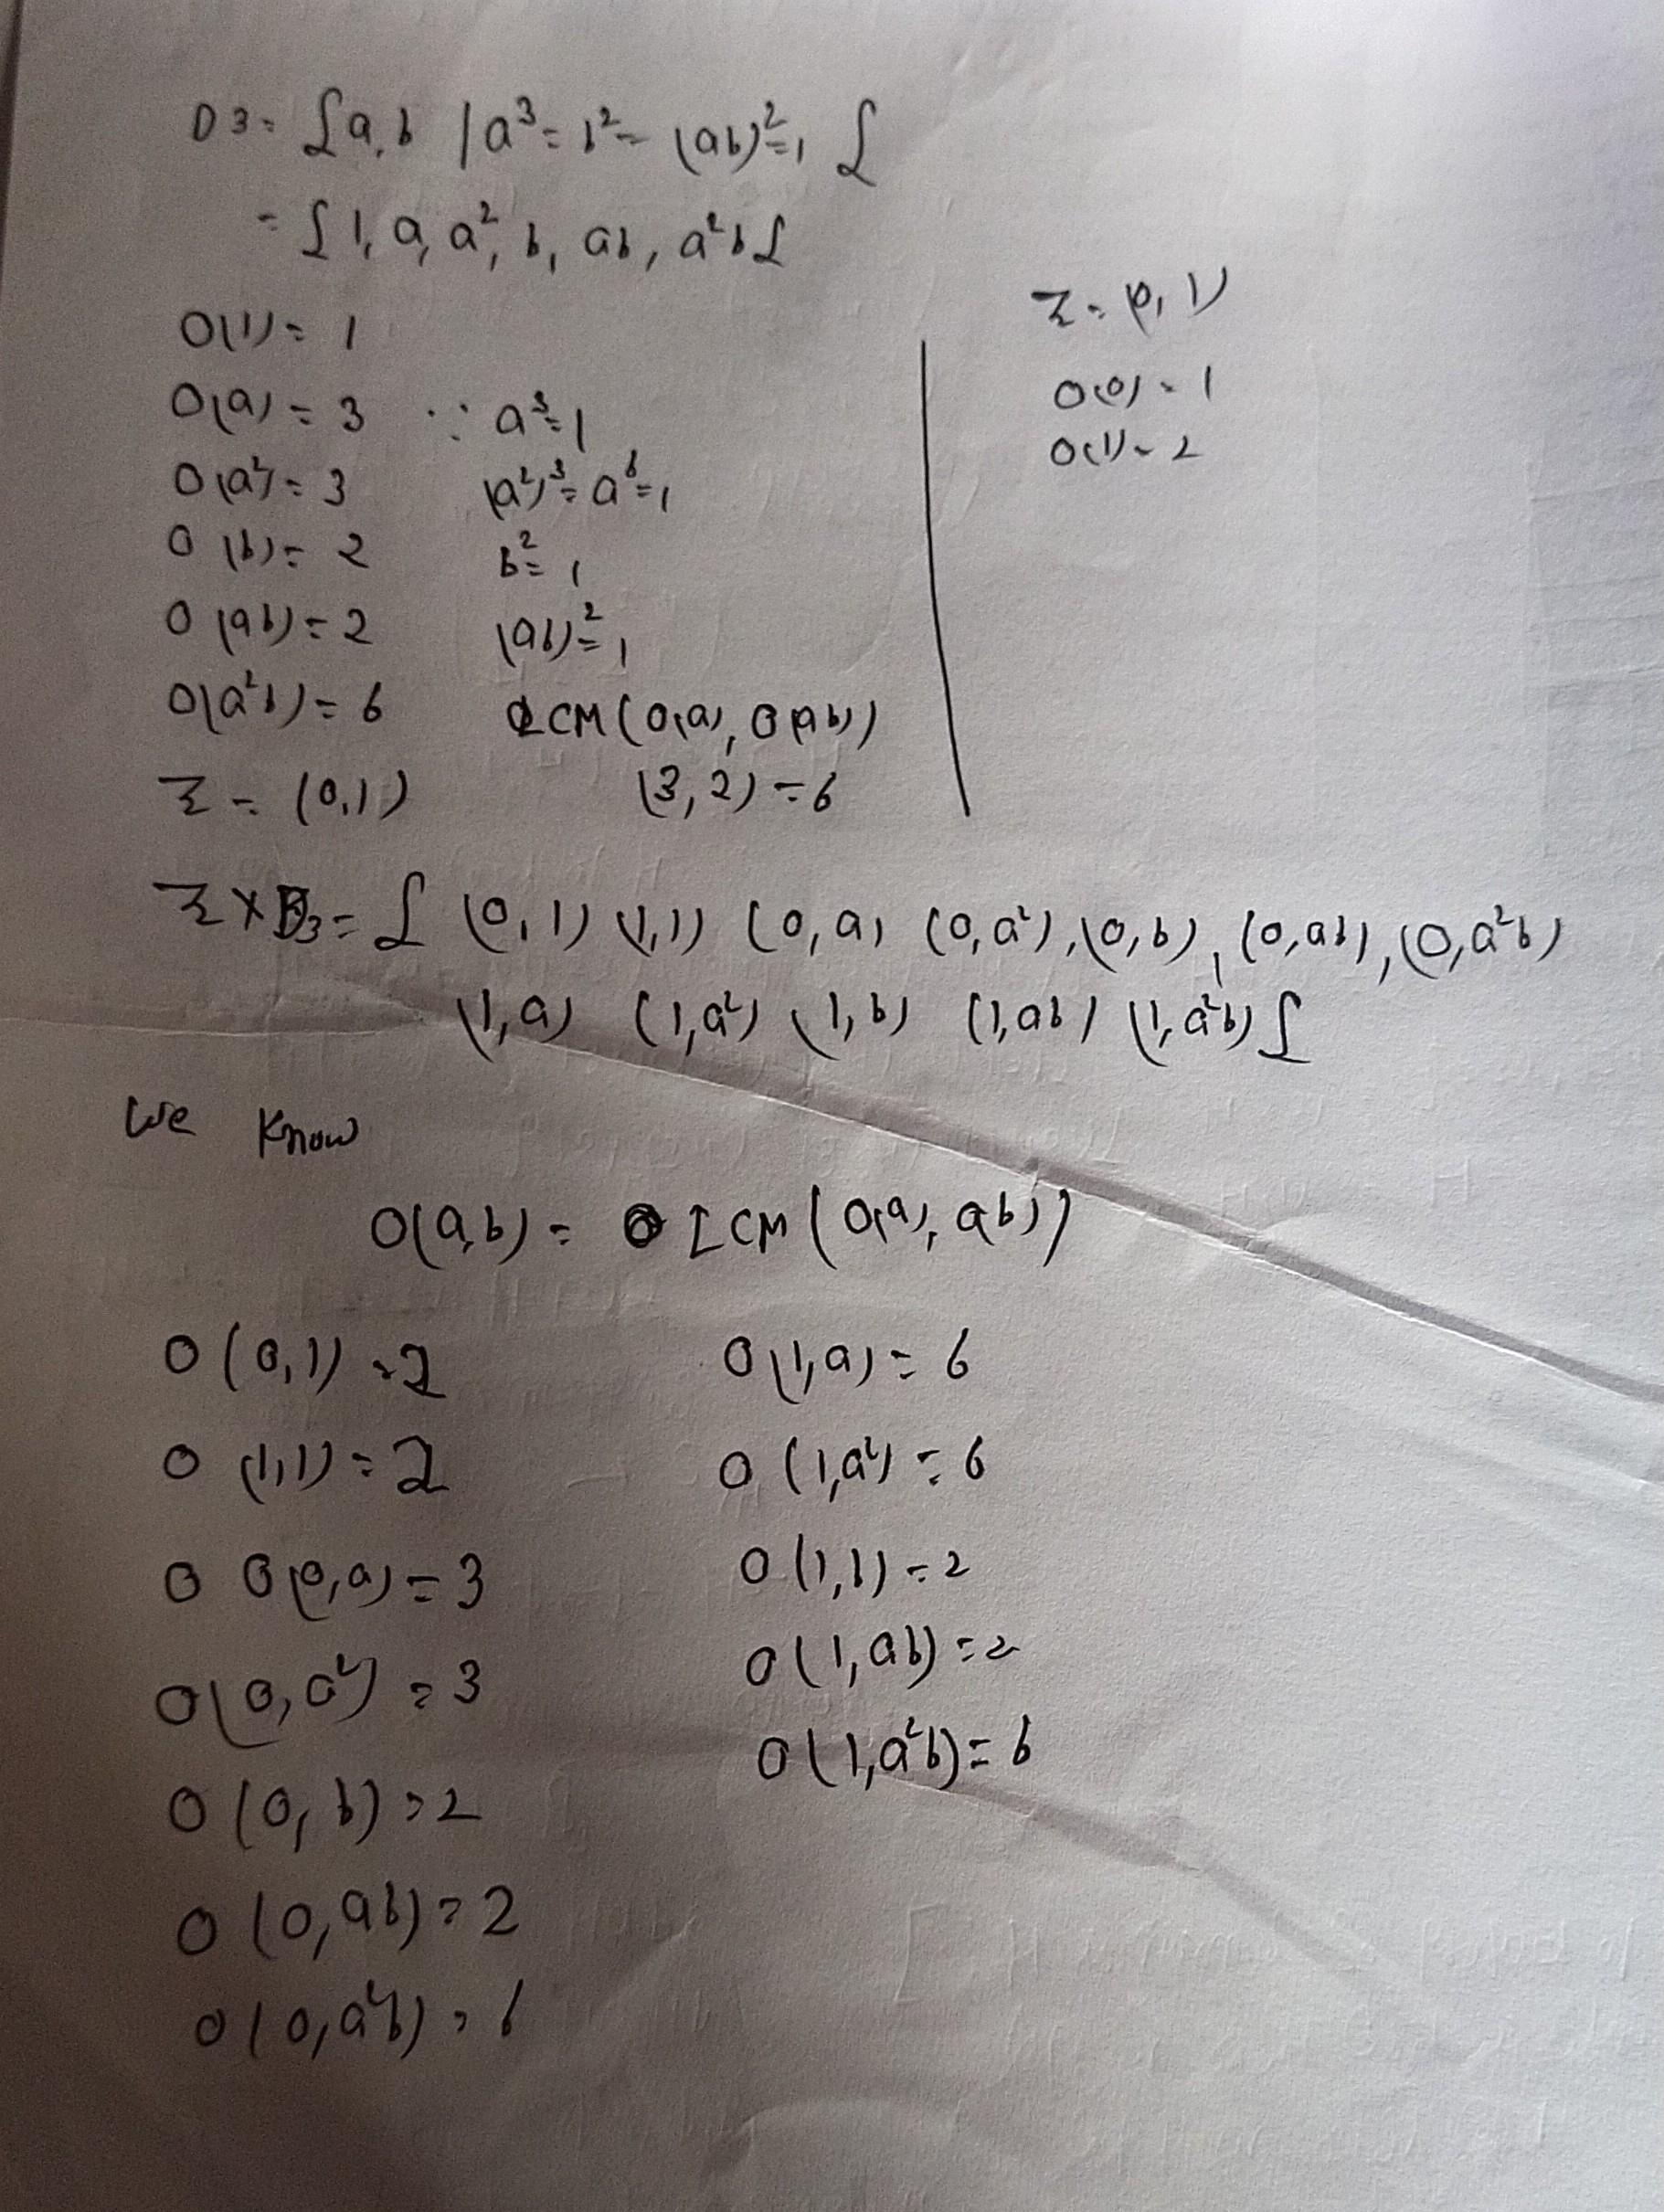 D3 = { a, b | a³ = b² = (ab)² = 1 }
= { 1, a, a², b, ab, a²b }
O(1) = 1
O(a) = 3 ∵ a³ = 1
O(a²) = 3 (a²)³ = a⁶ = 1
O(b) = 2 b² = 1
O(ab) = 2 (ab)² = 1
O(a²b) = 6 LCM (O(a), O(ab))
Z = (0,1) (3,2) = 6
Z = (0,1)
O(0) = 1
O(1) = 2
Z × D3 = { (0,1) (1,1) (0,a) (0,a²), (0,b), (0,ab), (0,a²b)
(1,a) (1,a²) (1,b) (1,ab) (1,a²b) }
We Know
O(a,b) = LCM (O(a), ab))
O (0,1) = 2
O (1,1) = 2
O O(0,a) = 3
O(0,a²) = 3
O(0,b) = 2
O(0,ab) = 2
O(0,a²b) = 6
O(1,a) = 6
O (1,a²) = 6
O (1,b) = 2
O(1,ab) = 2
O(1,a²b) = 6